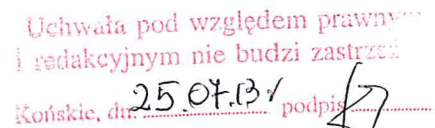 Uchwała pod względem prawnym
i redakcyjnym nie budzi zastrzeż
Końskie, dn. 25.07.13 r podpis